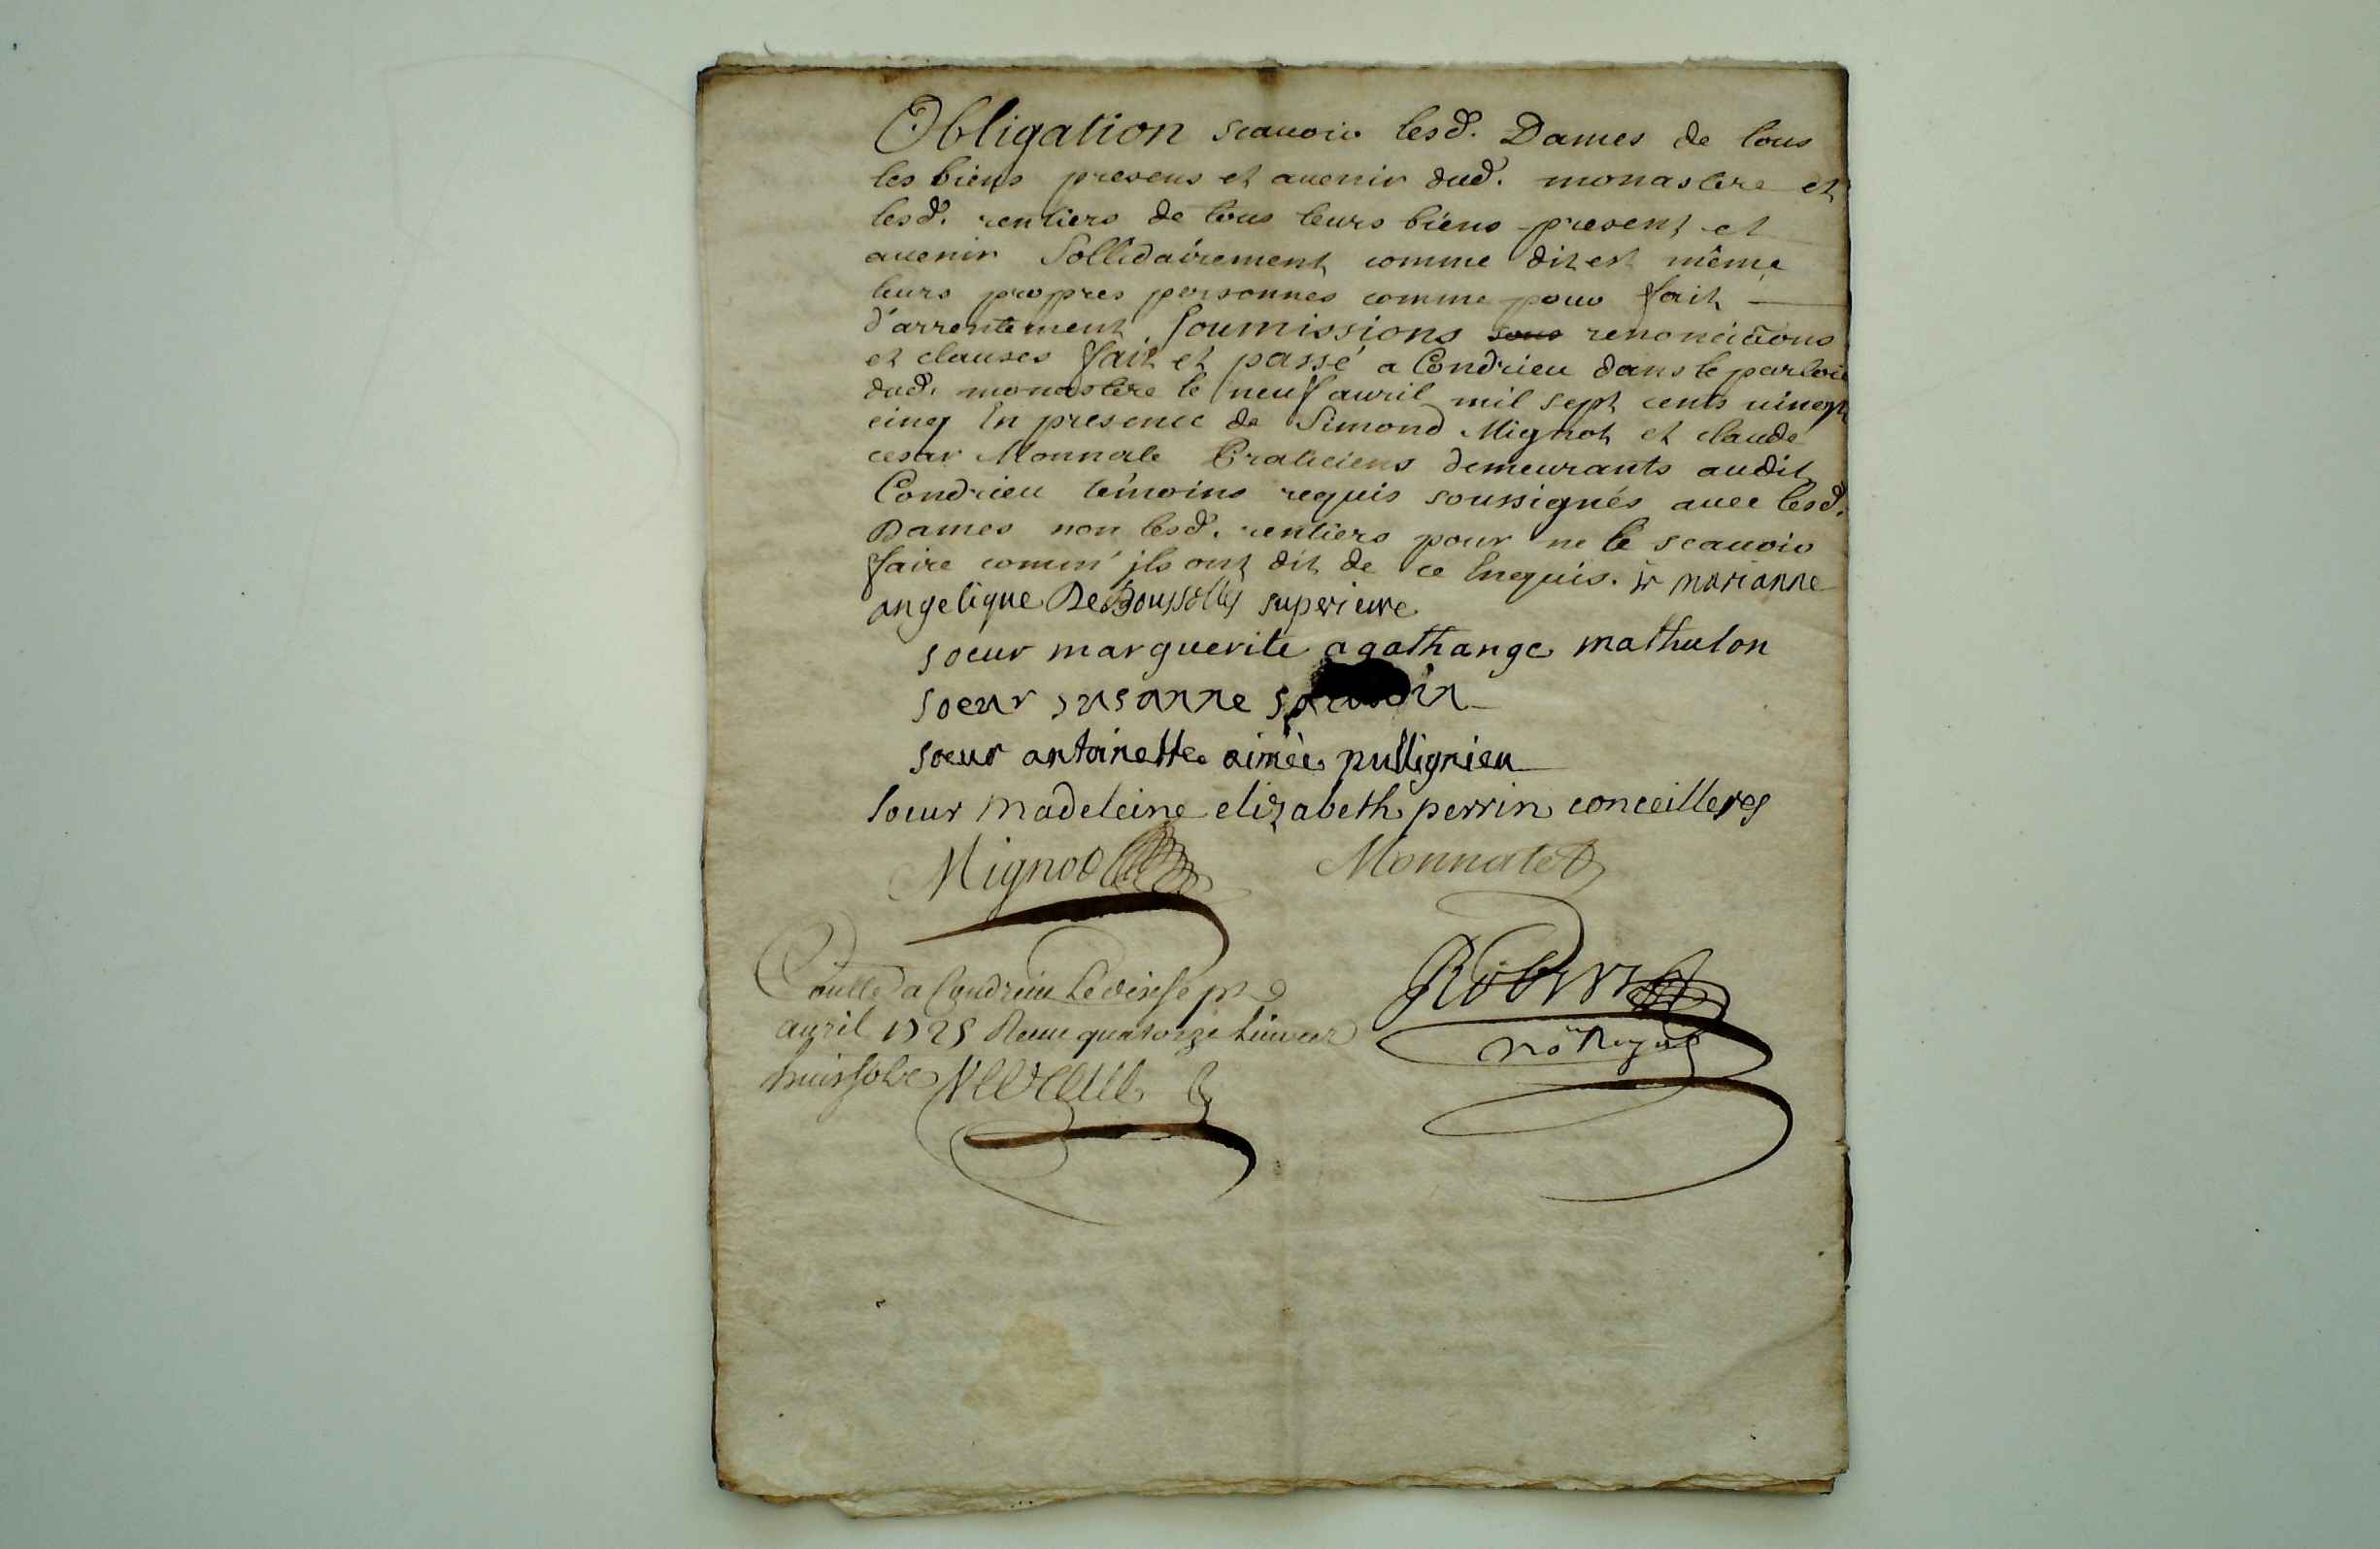 Obligation scauoir lesd. Dames de tous
les biens presens et auenir dud. monastere et
lesd. rentiers de tous leurs biens present et
auenir Sollidairement comme dit est même
leurs propres personnes comme pour fait
d'arrentement, Soumissions sous renonciãons
et clauses fait et passé a Condrieu dans le parloir
dud. monastere le neuf auril mil sept cents uingt
cinq En presence de Simond Mignot et claude
cesar Monnate Praticiens demeurants audit
Condrieu témoins requis soussignés auec lesd.
Dames non lesd. rentiers pour ne le scauoir
faire comm' ils ont dit de ce Enquis. sr marianne
angelique De Boussolles superieure
soeur marguerite agathange mathulon
soeur susanne
soeur antoinette aimée pullignieu
soeur madeleine elizabeth perrin conceilleres
Mignot Monnate
a Condrieu Le
auril 1725 Receu quatorze Liures
huit sols